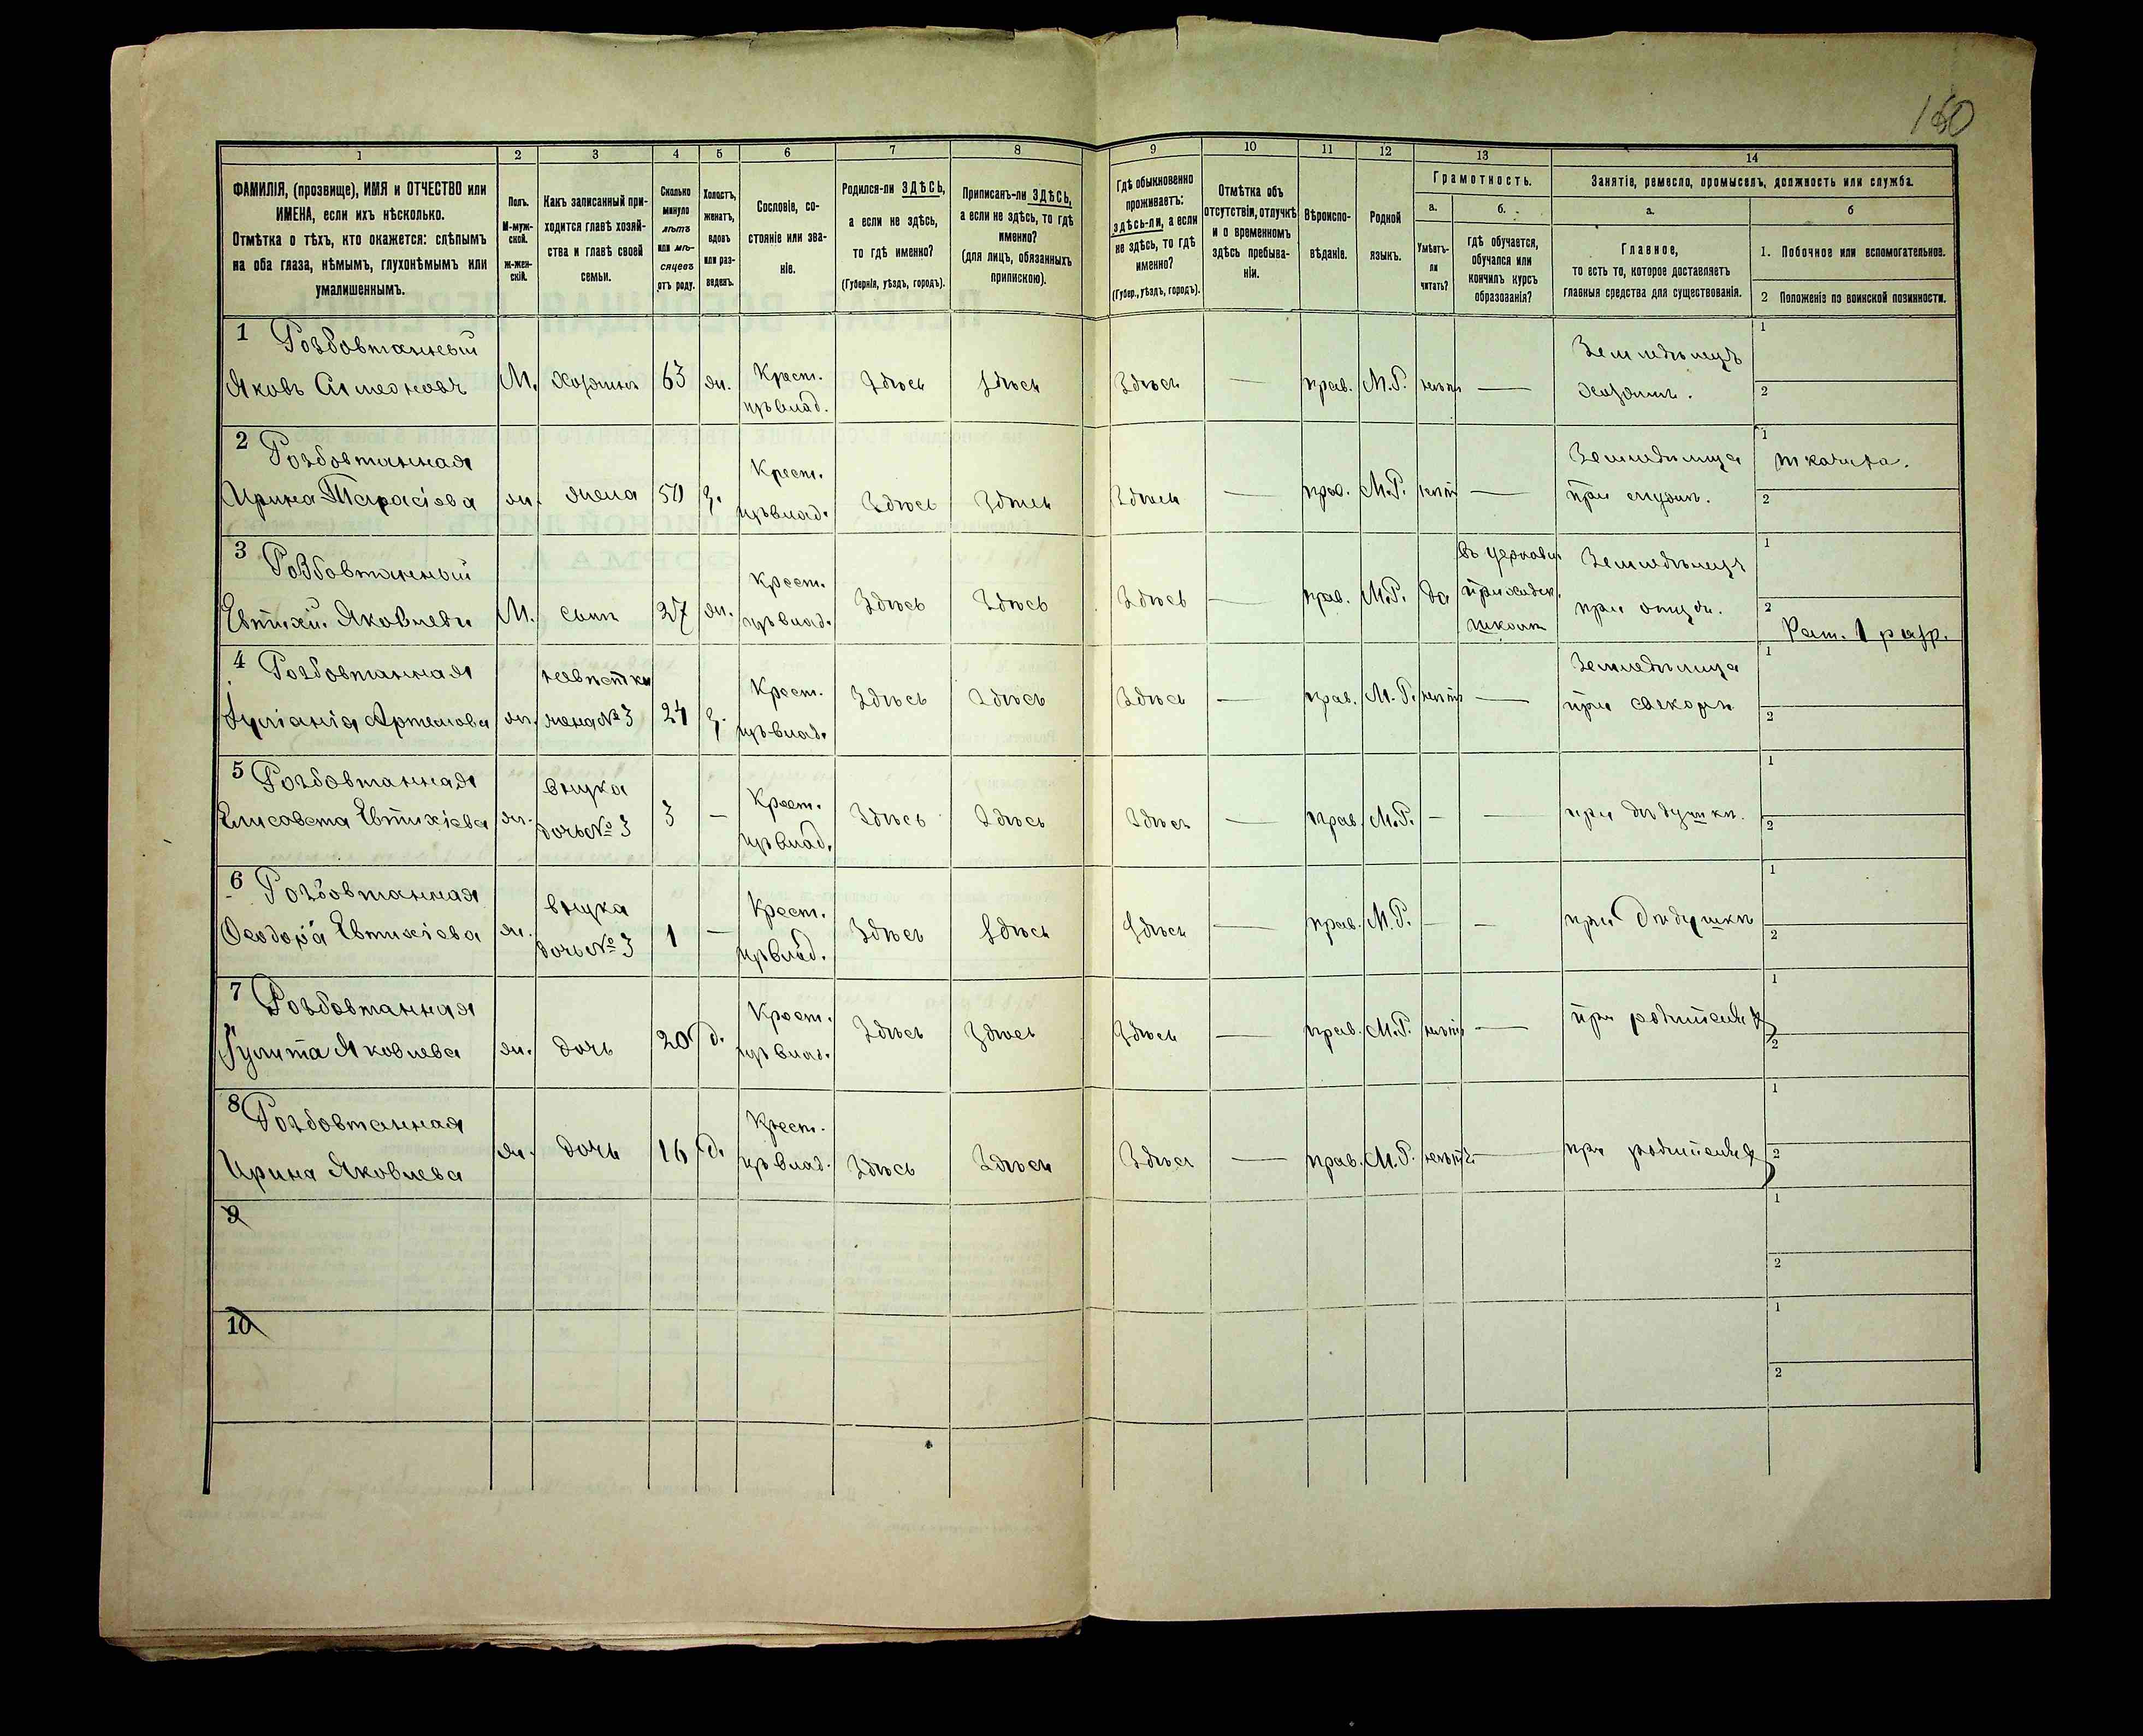 160
1 2 3 4 5 6 7 8 9 10 11 12 13 14
ФАМИЛІЯ, (прозвище), ИМЯ и ОТЧЕСТВО или
ИМЕНА, если ихъ нѣсколько.
Отмѣтка о тѣхъ, кто окажется: слѣпымъ
на оба глаза, нѣмымъ, глухонѣмымъ или
умалишеннымъ.
Полъ.
М-муж-
ской.
ж-жен-
скій.
Какъ записанный при-
ходится главѣ хозяй-
ства и главѣ своей
семьи.
Сколько
минуло
лѣтъ
или мѣ-
сяцевъ
отъ роду.
Холостъ,
женатъ,
вдовъ
или раз-
веденъ.
Сословіе, со-
стояніе или зва-
ніе.
Родился-ли ЗДѢСЬ,
а если не здѣсь,
то гдѣ именно?
(Губернія, уѣздъ, городъ).
Приписанъ-ли ЗДѢСЬ,
а если не здѣсь, то гдѣ
именно?
(для лицъ, обязанныхъ
припискою).
Гдѣ обыкновенно
проживаетъ:
здѣсь-ли, а если
не здѣсь, то гдѣ
именно?
(Губер., уѣздъ, городъ).
Отмѣтка объ
отсутствіи, отлучкѣ
и о временномъ
здѣсь пребыва-
ніи.
Вѣроиспо-
вѣданіе.
Родной
языкъ.
Грамотность.
а.
Умѣетъ-
ли
читать?
б.
гдѣ обучается,
обучался или
кончилъ курсъ
образованія?
Занятіе, ремесло, промыселъ, должность или служба.
а.
Главное,
то есть то, которое доставляетъ
главныя средства для существованія.
б
1. Побочное или вспомогательное.
2 Положеніе по воинской повинности.
1 Розбовтанный
Яковъ Симеоновъ М. хозяинъ 63 ж. Крест. из владѣ. Здѣсь Здѣсь Здѣсь — прав. М.Р. нѣтъ — Земледѣлецъ хозяинъ. 1 2
2 Розбовтанная
Ирина Тарасіева ж. жена 50 з. Крест. Здѣсь Здѣсь Здѣсь — прав. М.Р. нѣтъ — Земледѣлица при мужѣ. 1 ткачиха. 2
3 Розбовтанный
Евтихій Яковлевъ М. сынъ 27 ж. Крест. Здѣсь Здѣсь Здѣсь — прав. М.Р. да въ церковн. приходск. школѣ Земледѣлецъ при отцѣ. 1 2 Рат. 1 разр.
4 Розбовтанная
Іуліанія Артемова ж. невѣстка жена №3 24 з. Крест. Здѣсь Здѣсь Здѣсь — прав. М.Р. нѣтъ — Земледѣлица при свекорѣ 1 2
5 Розбовтанная
Елисавета Евтихіева ж. внука дочь №3 3 — Крест. Здѣсь Здѣсь Здѣсь — прав. М.Р. — — при дѣдушкѣ. 1 2
6 Розбовтанная
Ѳеодора Евтихіева ж. внука дочь №3 1 — Крест. Здѣсь Здѣсь Здѣсь — прав. М.Р. — — при дѣдушкѣ 1 2
7 Розбовтанная
Іулита Яковлева ж. дочь 20 д. Крест. Здѣсь Здѣсь Здѣсь — прав. М.Р. нѣтъ — при родителях 1 2
8 Розбовтанная
Ирина Яковлева ж. дочь 16 д. Крест. Здѣсь Здѣсь Здѣсь — прав. М.Р. нѣтъ — при родителях 1 2
9 1 2
10 1 2